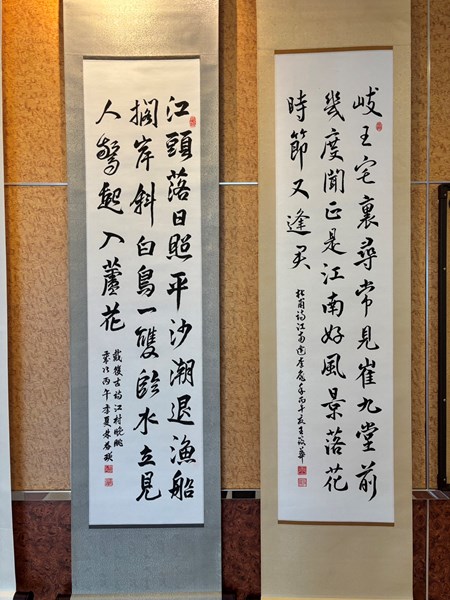 岐王宅裏尋常見崔九堂前
幾度聞正是江南好風景落花
時節又逢君
杜甫詩江南逢李龜年丙午
江頭落日照平沙潮退漁船
擱岸斜白鳥一雙臨水立見
人驚起入蘆花
戴復古詩江村晚眺
歲次丙午季夏朱